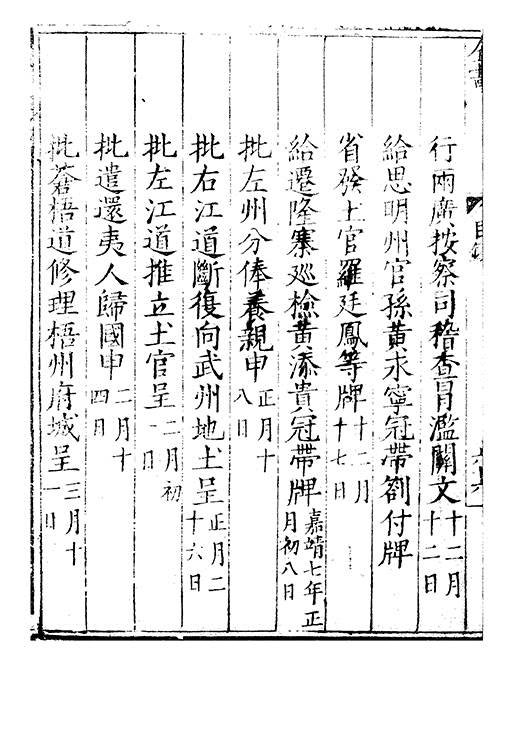 目錄
行兩廣按察司稽查冒濫關文十二月十二日
給思明州官孫黃永寧冠帶劄付牌
省發土官羅廷鳳等牌十二月十七日
給遷隆寨巡檢黃添貴冠帶牌嘉靖七年正月初八日
批左州分俸養親申正月十八日
批右江道斷復向武州地土呈正月二十六日
批左江道推立土官呈二月初一日
批遣還夷人歸國申二月十四日
批蒼梧道修理梧州府城呈三月十一日